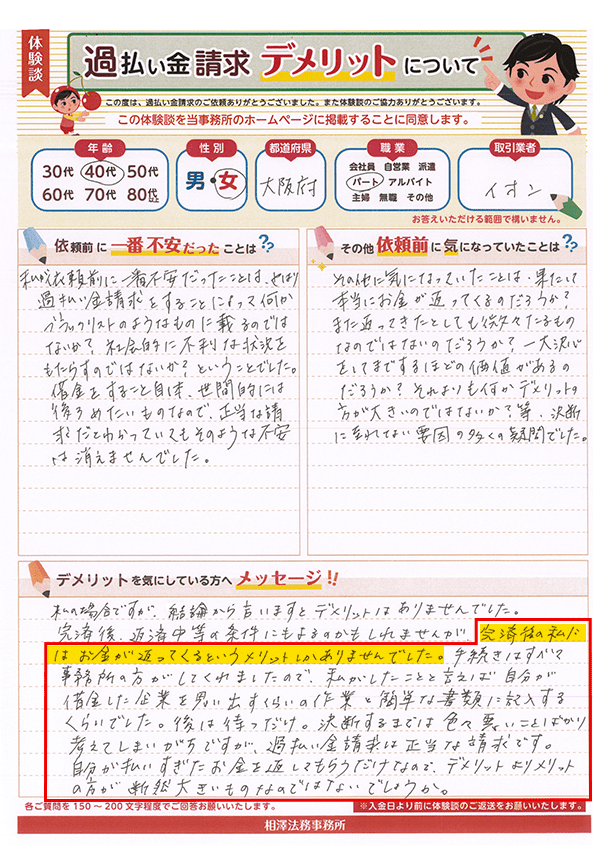 体験談
過払い金請求 デメリットについて
この度は、過払い金請求のご依頼ありがとうございました。また体験談のご協力ありがとうございます。
この体験談を当事務所のホームページに掲載することに同意します。
年齢
30代 40代 50代
60代 70代 80代以上
性別
男・女
都道府県
大阪府
職業
会社員 自営業 派遣
パート アルバイト
主婦 無職 その他
取引業者
イオン
お答えいただける範囲で構いません。
依頼前に一番不安だったことは??
私が依頼前に一番不安だったことは、やはり
過払い金請求をすることによって何か
ブラックリストのようなものに載るのでは
ないか?社会的に不利な状況を
もたらすのではないか?ということでした。
借金をすること自体、世間的には
後ろめたいものなので、正当な請
求だとわかっていてもそのような不安
は消えませんでした。
その他依頼前に気になっていたことは?
その他に気になっていたことは、果たして
本当にお金が返ってくるのだろうか?
また返ってきたとしても微々たるもの
なのではないのだろうか?一大決心
をしてまでするほどの価値があるの
だろうか?それよりも何かデメリットの
方が大きいのではないか?等、決断
に至れない要因の多くの疑問でした。
デメリットを気にしている方へメッセージ!!
私の場合ですが、結論から言いますとデメリットはありませんでした。
完済後、返済中等の条件にもよるのかもしれませんが、完済後の私に
はお金が返ってくるというメリットしかありませんでした。手続きはすべて
事務所の方がしてくれましたので、私がしたことと言えば自分が
借金した企業を思い出すくらいの作業と簡単な書類に記入する
くらいでした。後は待つだけ。決断するまでは色々悪いことばかり
考えてしまいがちですが、過払い金請求は正当な請求です。
自分が払いすぎたお金を返してもらうだけなので、デメリットよりメリット
の方が断然大きいものなのではないでしょうか。
各ご質問を150〜200文字程度でご回答お願いいたします。
※入金日より前に体験談のご返送をお願いいたします。
相澤法務事務所